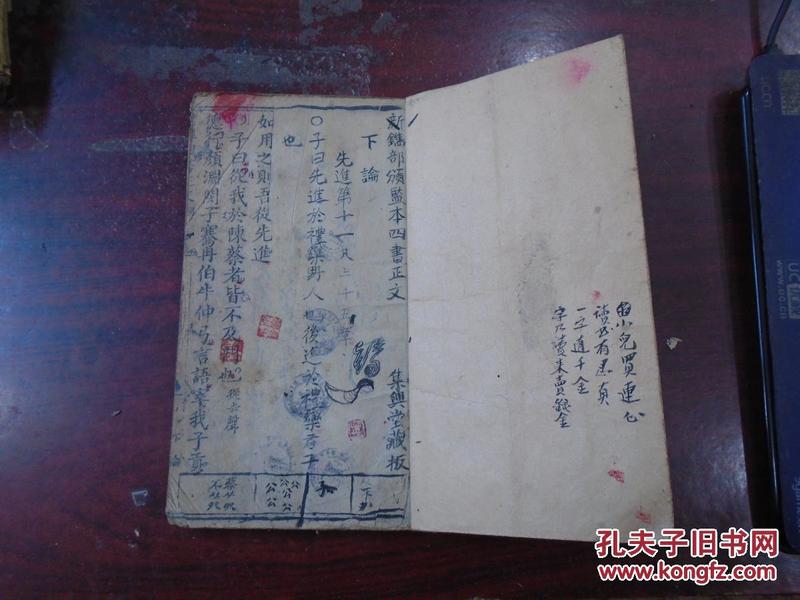 新鐫部頒監本四書正文
集興堂藏板
下論
先進第十一凡二十五章
〇子曰先進於禮樂野人也後進於禮樂君子
也
如用之則吾從先進
子曰從我於陳蔡者皆不及門也從去聲
德行顏淵閔子騫冉伯牛仲弓言語宰我子貢
小兒買連
讀书有
一字值千金
字 讀 買
公公
公公
公公
孔夫子旧书网
www.kongfz.com